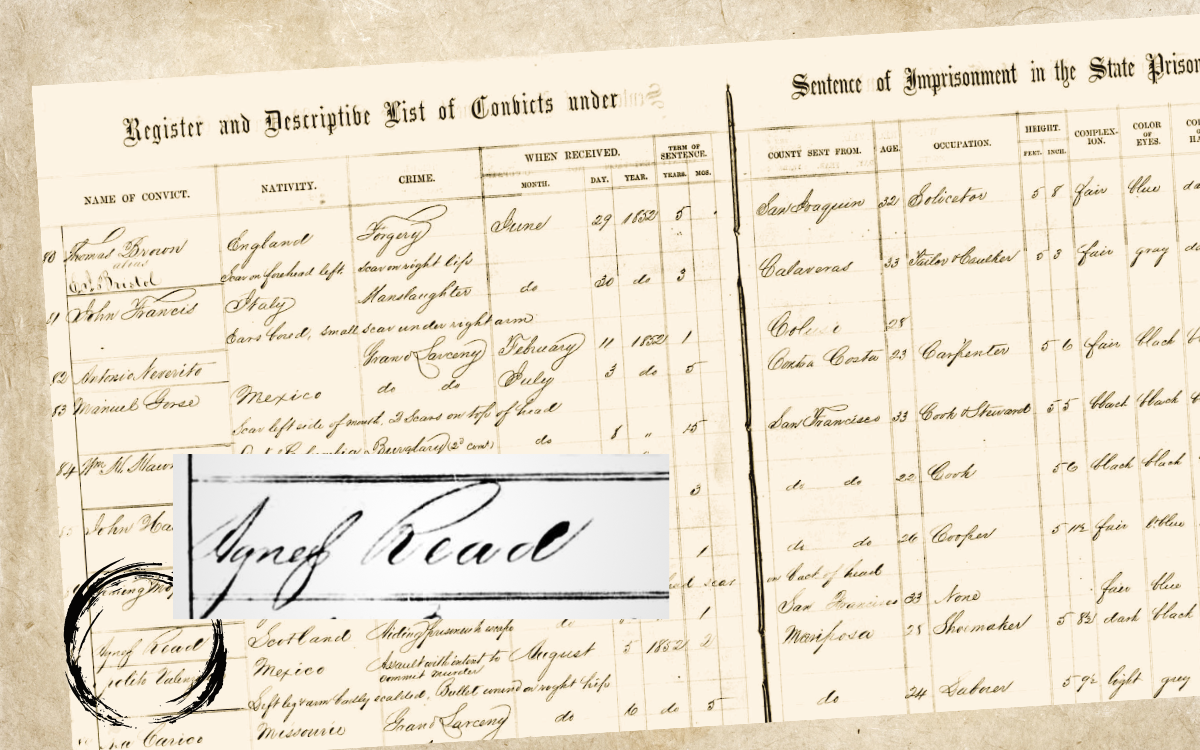 Register and Descriptive List of Convicts under
Sentence of Imprisonment in the State Prison
NAME OF CONVICT. NATIVITY. CRIME. WHEN RECEIVED. TERM OF SENTENCE.
MONTH. DAY. YEAR. YEARS. MOS.
COUNTY SENT FROM. AGE. OCCUPATION. HEIGHT. COMPLEX-ION. COLOR OF EYES.
FEET. INCH.
80 Thomas Brown England Forgery June 29 1852 5 San Joaquin 32 Solicitor 5 8 fair blue
alias
Scar on forehead left. scar on right lip
81 John Francis Italy Manslaughter do 30 do 3 Calaveras 33 Tailor & Caulker 5 3 fair gray
Ears bored, small scar under right arm
82 Antonio Neverito Grand Larceny February 11 1852 1 28
83 Manuel Gorse Mexico do do July 3 do 5 Contra Costa 23 Carpenter 5 6 fair black
Scar left side of mouth, 2 Scars on top of head
84 Wm. M. Burglary (2d cont) do 8 " 15 San Francisco 33 Cook & Steward 5 5 black black
3 do do 22 Cook 5 6 black black
85 John
1 do do 26 Cooper 5 11½ fair
scar on back of head
1 San Francisco 33 None fair blue
Agnes Read
Agnes Read Scotland Aiding prisoners escape do
Mexico Assault with intent to commit murder August 5 1852 2 Mariposa 25 Shoemaker 5 8½ dark black
Left leg & arm badly scalded, Bullet wound on right hip
Carico Missouri Grand Larceny do 16 do 5 do 24 Laborer 5 9½ light grey